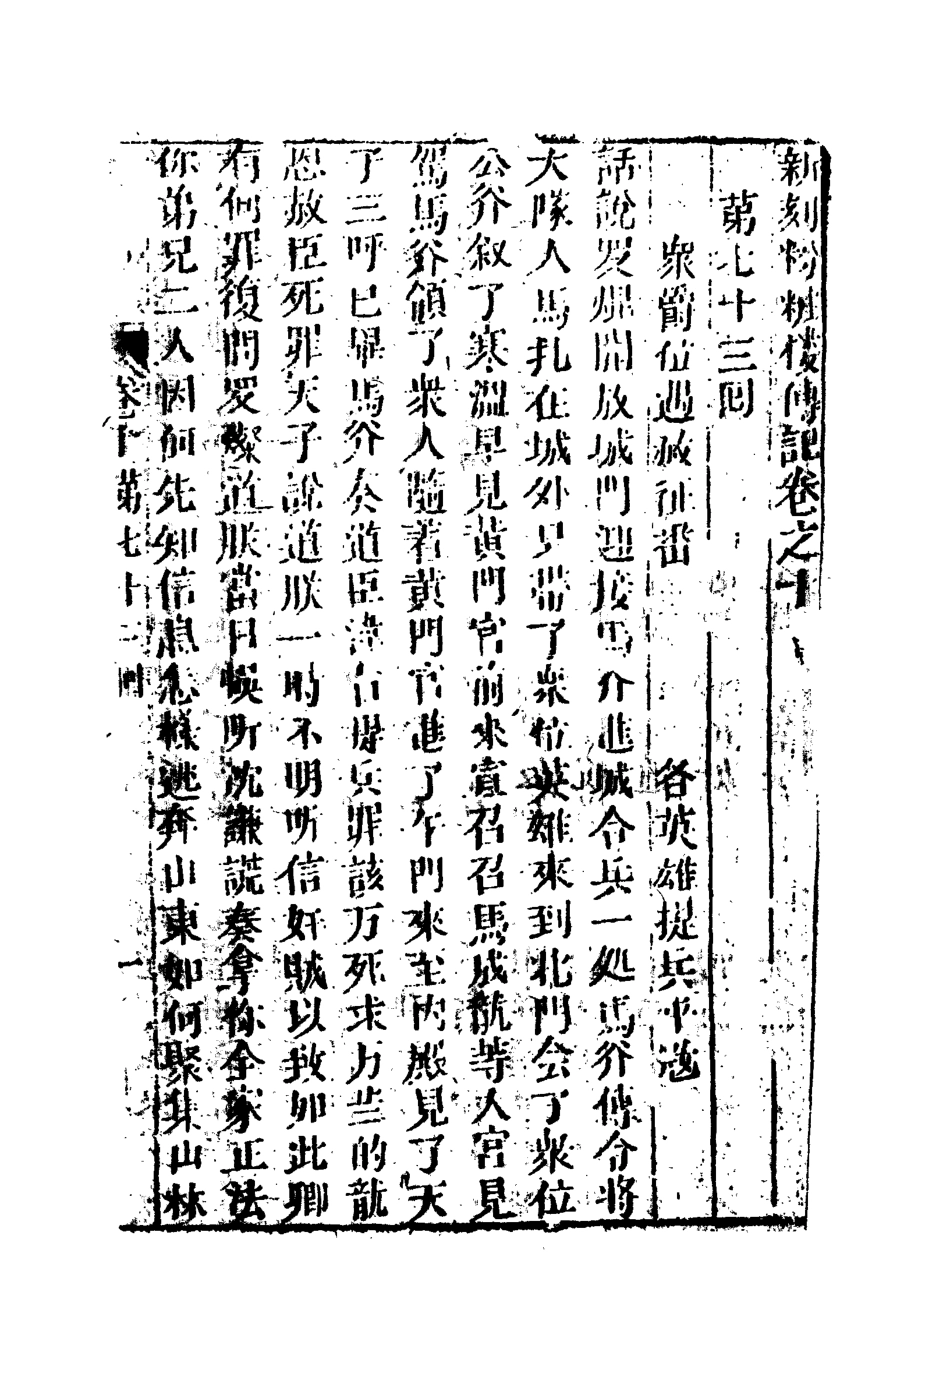 新刻粉粧樓傳記卷之十
第七十三回
衆爵位遇赦征番　各英雄提兵平寇
話說炮開放城門迎接馬爷進城合兵一処馬爷傳令将
大隊人馬扎在城外只帶了衆將英雄來到北門会了衆位
公爷叙了寒溫早見黃門官前來宣召召馬成龍等人宮見
駕馬爷領了衆人隨着黃門官進了午門來至內殿見了天
了三呼已畢馬爷奏道臣違旨提兵罪該万死求万歲的龍
恩赦臣死罪天子說道朕一時不明听信奸賊以致如此卿
有何罪復問羅燦道朕當日悞听沈謙謊奏拿你全家正法
你弟兄二人因何先知信息怎樣逃奔山東如何聚集山林
卷十第七十三回　一